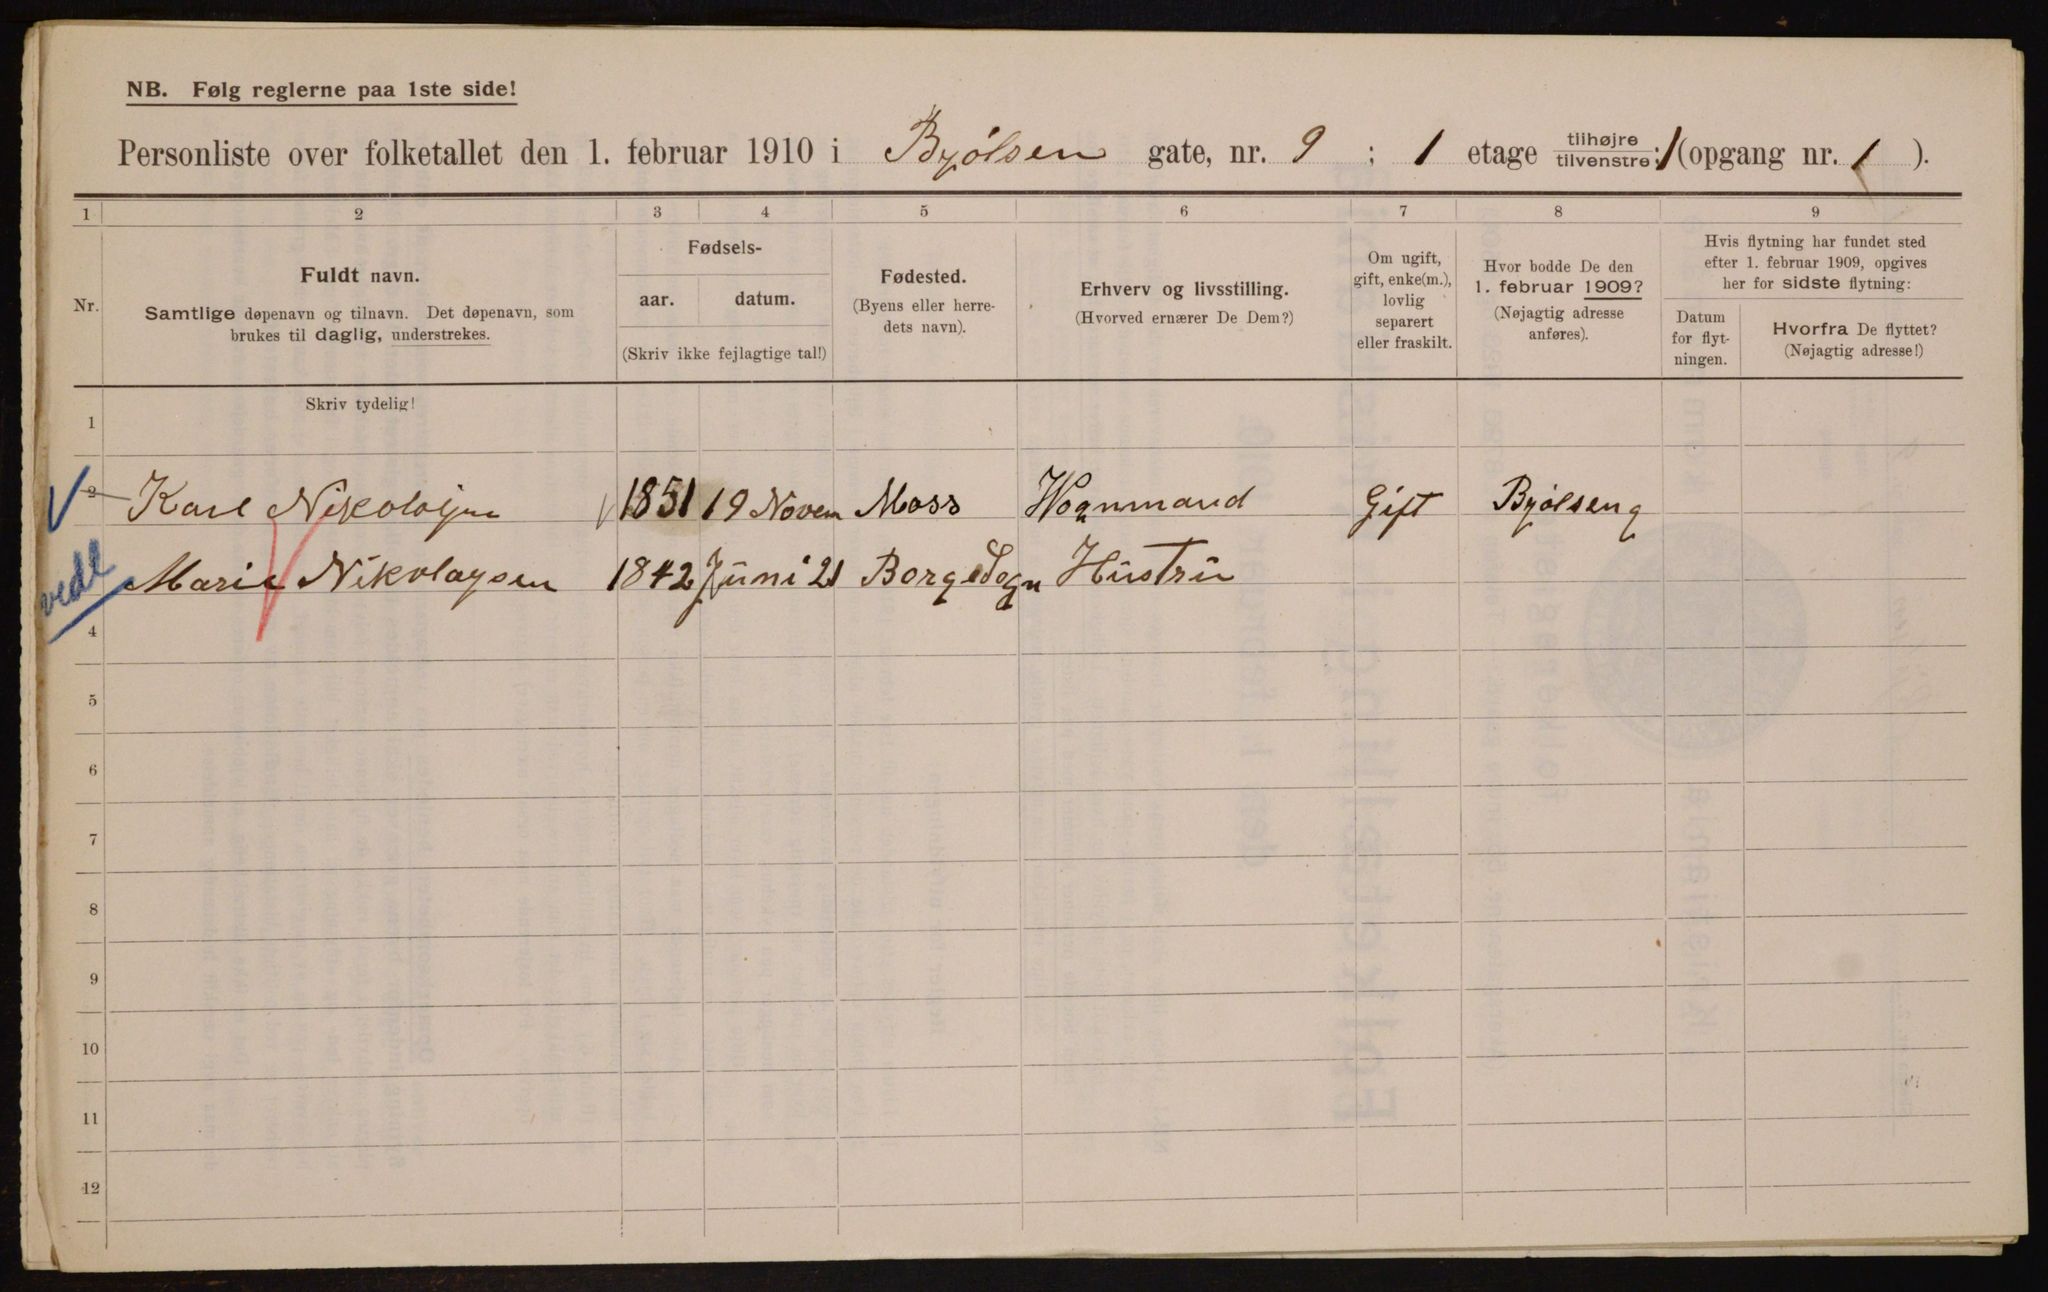 NB. Følg reglerne paa 1ste side!
Personliste over folketallet den 1. februar 1910 i Bjølsen gate, nr. 9 ; 1 etage tilhøjre/tilvenstre: 1 (opgang nr. 1 ).
1 2 3 4 5 6 7 8 9
Nr.
Fuldt navn.
Samtlige døpenavn og tilnavn. Det døpenavn, som
brukes til daglig, understrekes.
Fødsels-
aar. datum.
(Skriv ikke fejlagtige tal!)
Fødested.
(Byens eller herre-
dets navn).
Erhverv og livsstilling.
(Hvorved ernærer De Dem?)
Om ugift,
gift, enke(m.),
lovlig
separert
eller fraskilt.
Hvor bodde De den
1. februar 1909?
(Nøjagtig adresse
anføres).
Hvis flytning har fundet sted
efter 1. februar 1909, opgives
her for sidste flytning:
Datum
for flyt-
ningen.
Hvorfra De flyttet?
(Nøjagtig adresse!)
Skriv tydelig!
1
2 Karl Nikolaisen 1851 19 Novem Moss Vognmand Gift Bjølseng
vedl Marie Nikolaysen 1842 Juni 21 Borge Sogn Hustru
4
5
6
7
8
9
10
11
12